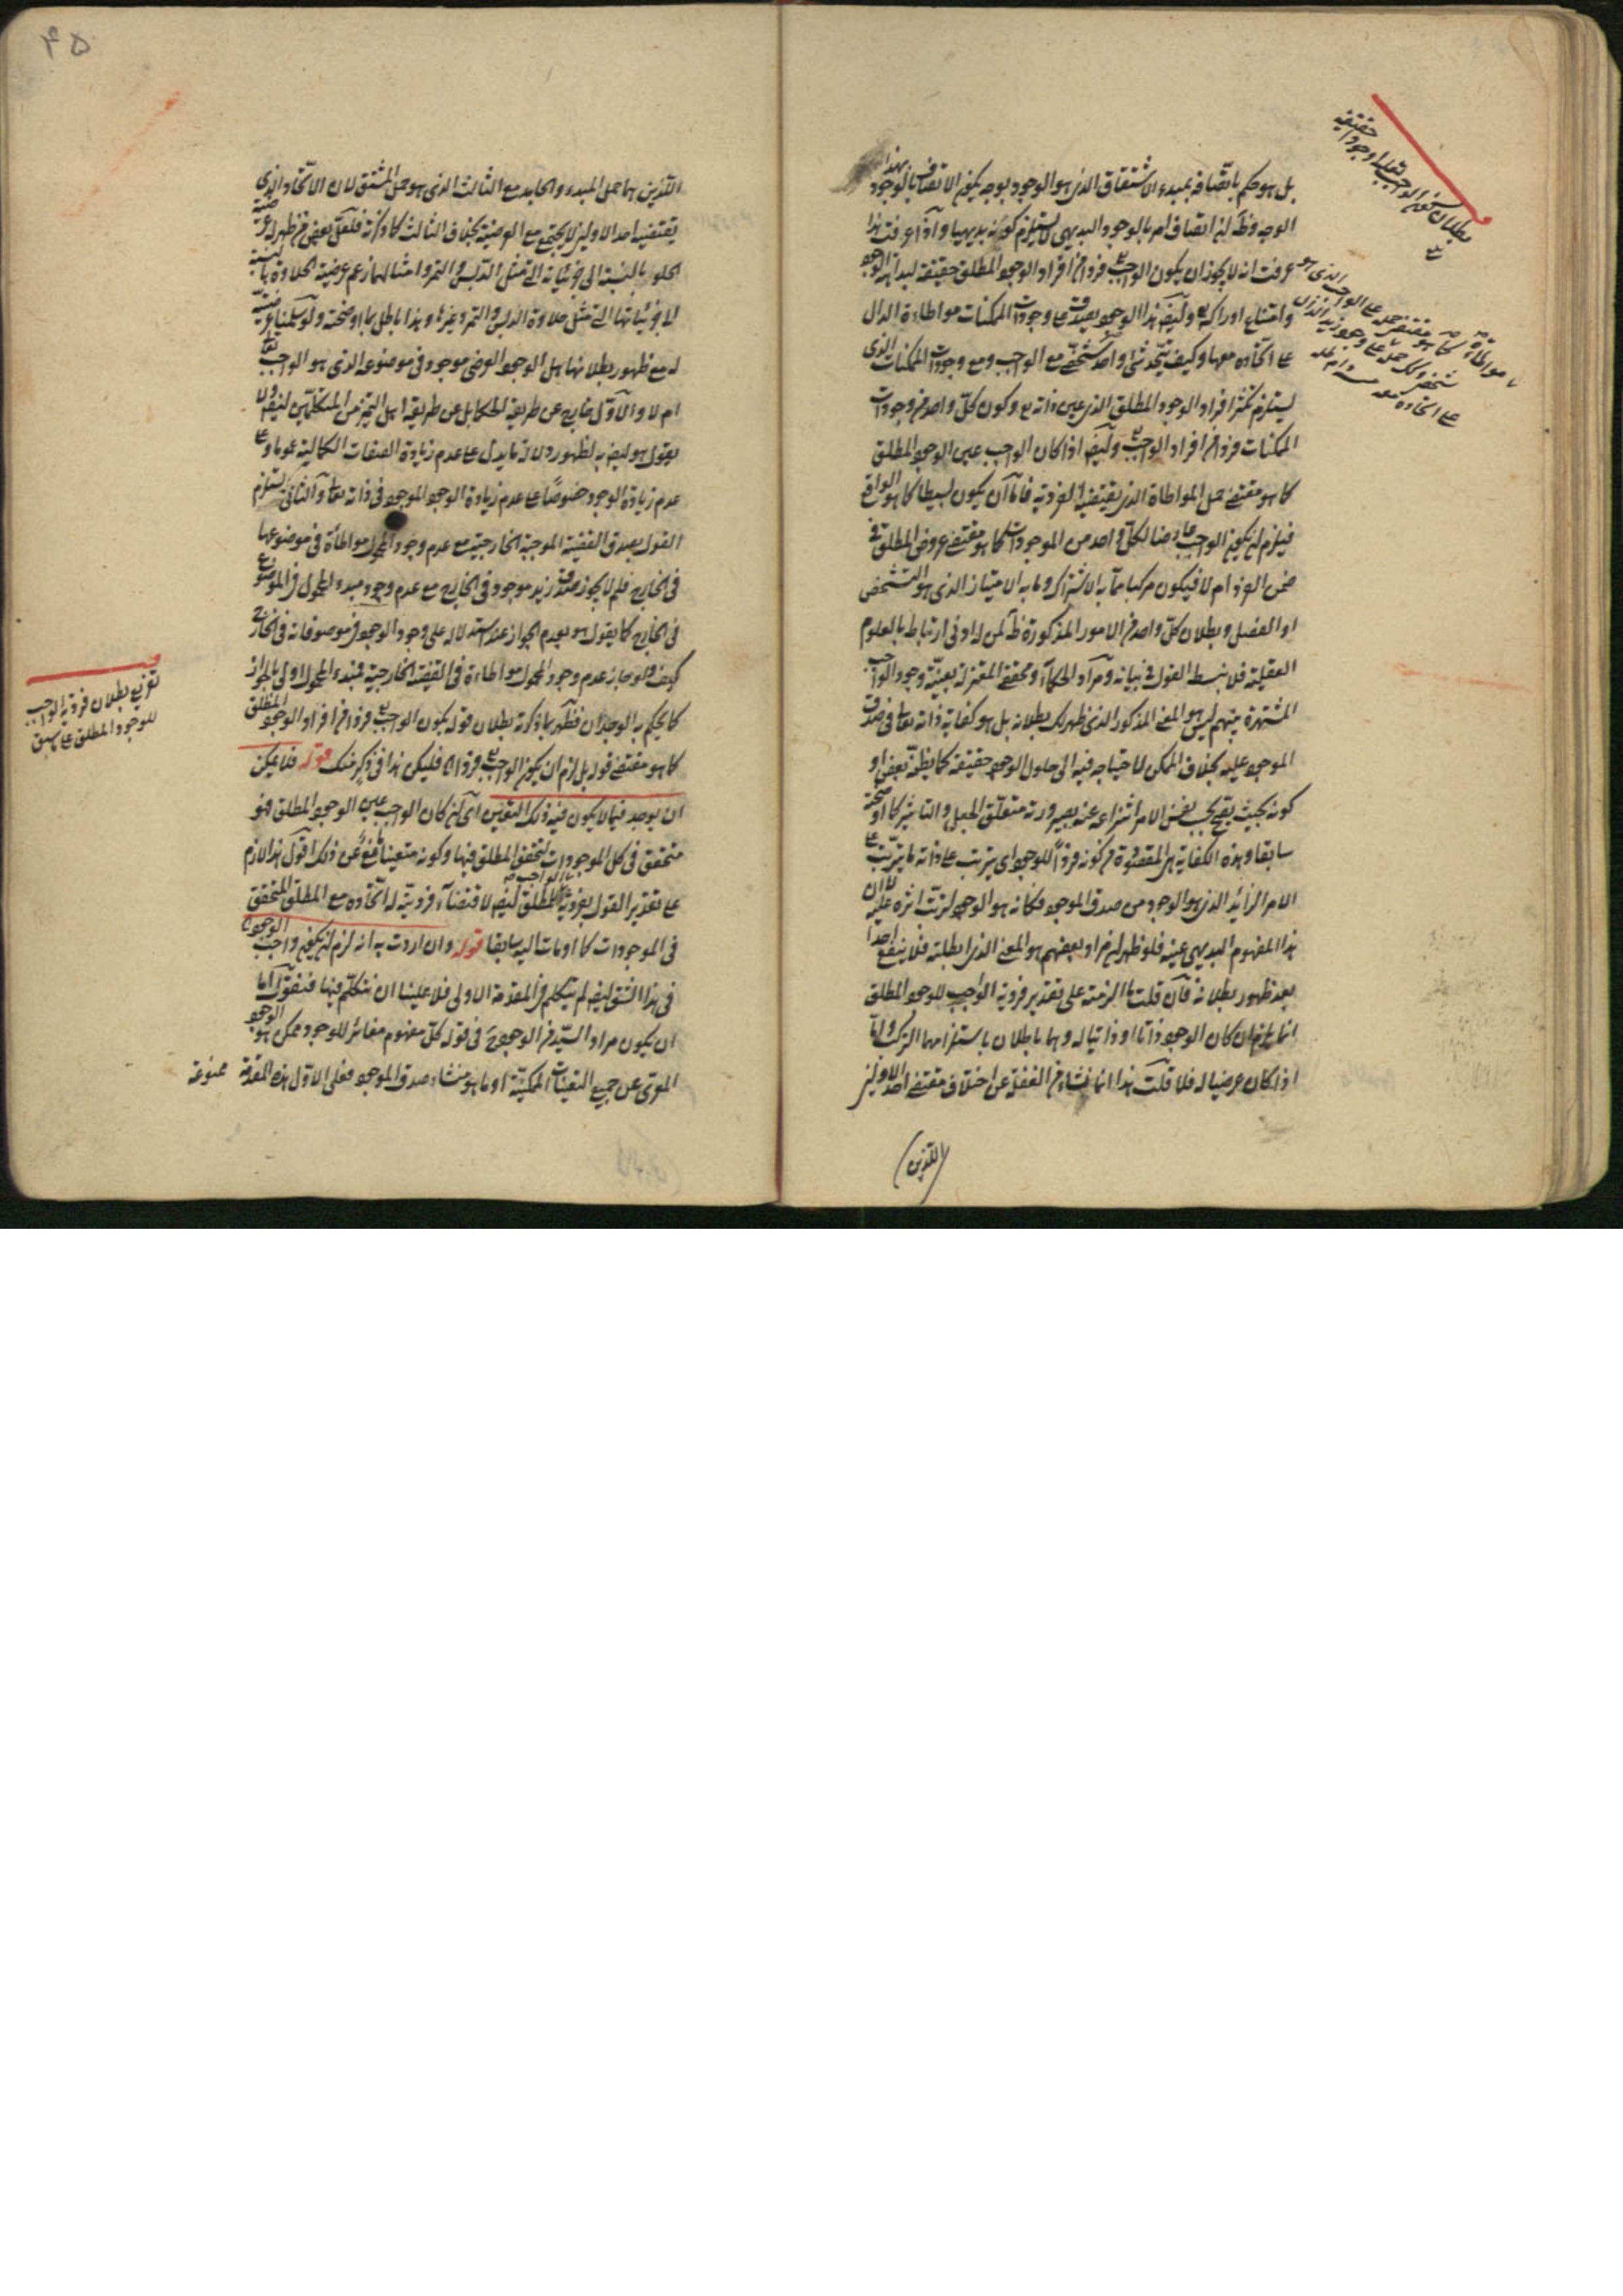 بل هو حكم باتصافه بمبدء الاشتقاق الذى هو الوجود بوجه يكون الاتصاف بالوجود بهذا
الوجه وظ ان اتصاف امر بالوجود البديهى لا يستلزم كونه بديهيا واذا عرفت هذا
عرفت انه لا يجوز ان يكون الواجب فردا من افراد الوجود المطلق حقيقة لبداهة الوجود
وامتناع ادراكه وايضا هذا الوجود يصدق على وجودات الممكنات مواطاءة الدال
على اتحاده معها وكيف يتحد شئ واحد شخصى مع الواجب ومع وجودات الممكنات الذى
يستلزم تكثر افراد الوجود المطلق الذى عين ذاته وكون كل واحد من وجودات
الممكنات فردا من افراد الواجب وايضا اذا كان الواجب عين الوجود المطلق
كما هو مقتضى حمل المواطاة الذى يقتضيه الفردية فاما ان يكون بسيطا كما هو الواقع
فيلزم ان يكون الواجب عارضا لكل واحد من الموجودات كما هو مقتضى عروض المطلق فى
ضمن الفرد ام لا فيكون مركبا مما به الاشتراك وما به الامتياز الذى هو التشخص
او الفصل وبطلان كل واحد من الامور المذكورة ظ لمن له ادنى ارتباط بالعلوم
العقلية فلا نبسط القول فى بيانه ومراد الحكماء ومحققى المعتزلة بعينية وجود الواجب
المشتهرة منهم ليس هو المعنى المذكور الذى ظهر لك بطلانه بل هو كفاية ذاته تعالى فى صدق
الموجود عليه بخلاف الممكن لاحتياجه فيه الى حلول الوجود حقيقة كما يظنه بعض او
كونه بحيث يصح بحسب نفس الامر انتزاعه عنه بصيرورته متعلق الجعل والتاثير كما اوضحته
سابقا وهذه الكفاية هى المقصودة من كونه فردا للوجود اى يترتب على ذاته ما يترتب على
الامر الزائد الذى هو الوجود من صدق الموجود فكانه هو الوجود لترتب اثره عليه لا ان
هذا المفهوم البديهى عينه فلو ظهر ان مراد بعضهم هو المعنى الذى ابطلته فلا ينفع احدا
بعد ظهور بطلانه فان قلت ما الزمته على تقدير فردية الواجب للوجود المطلق
انما يلزم ان كان الوجود ذاتا او ذاتيا له وهما باطلان باستلزامهما التركب واما
اذا كان عرضيا له فلا قلت هذا انما نشاء من الغفلة عن اختلاف مقتضى احد الاولين
(اللذين)
بطلان كون الواجب تعالى وجودا حقيقة
اللذين هما حمل المبدء والجامد مع الثالث الذى هو حمل المشتق لان الاتحاد الذى
يقتضيه احد الاولين لا يجتمع مع العرضية بخلاف الثالث كما ذكرته فلعل بعض من ظهر له عرضية
الحلو بالنسبة الى جزئياته التى مثل الدبس والتمر وامثالهما زعم عرضية الحلاوة بالنسبة
الى جزئياتها التى مثل حلاوة الدبس والتمر وغيرها وهذا باطل بما اوضحته ولو سلمنا عرضيته
له مع ظهور بطلانها هل الوجود العرضى موجود فى موضوعه الذى هو الواجب تعالى
ام لا والاول خارج عن طريقة الحكماء بل عن طريقة اهل التميز من المتكلمين ايضا ولا
يقول هو ايضا به لظهور دلالة ما يدل على عدم زيادة الصفات الكمالية عموما وعلى
عدم زيادة الوجود خصوصا على عدم زيادة الوجود الموجود فى ذاته تعالى والثانى يستلزم
القول بصدق القضية الموجبة الخارجية مع عدم وجود المحمول مواطاة فى موضوعها
فى الخارج فلم لا يجوز صدق زيد موجود فى الخارج مع عدم وجود مبدء المحمول فى الموضوع
فى الخارج كما يقول هو بعدم الجواز عند استدلاله على وجود الوجود فى موصوفاته فى الخارج
كيف ولو جاز عدم وجود المحمول مواطاءة فى القضية الخارجية فمبدء المحمول اولى بالجواز
كما يحكم به الوجدان فظهر بما ذكرته بطلان قوله بكون الواجب فردا من افراد الوجود المطلق
كما هو مقتضى قوله بل لزم ان يكون الواجب فردا له فليكن هذا فى ذكر منك قوله فلا يمكن
ان يوجد فيما لا يكون فيه ذلك التعين اى ان كان الواجب عين الوجود المطلق فهو
متحقق فى كل الموجودات لتحقق المطلق فيها وكونه متعينا مانع عن ذلك اقول هذا لازم
على تقدير القول بفردية الواجب للمطلق ايضا لاقتضاء فرديته له اتحاده مع المطلق المتحقق
فى الموجودات كما اومات اليه سابقا قوله وان اردت به انه لزم ان يكون واجب الوجود
فى هذا الشق ايضا لم يتكلم فى المقدمة الاولى فلا علينا ان نتكلم فيها فنقول اما
ان يكون مراد السيد من الوجود فى قوله كل مفهوم مغائر للوجود ممكن هو الوجود
المعرى عن جميع التعينات الممكنة او ما هو منشاء صدق الموجود فعلى الاول هذه المقدمة ممنوعة
تقريع بطلان فردية الواجب
للوجود المطلق على ما سبق